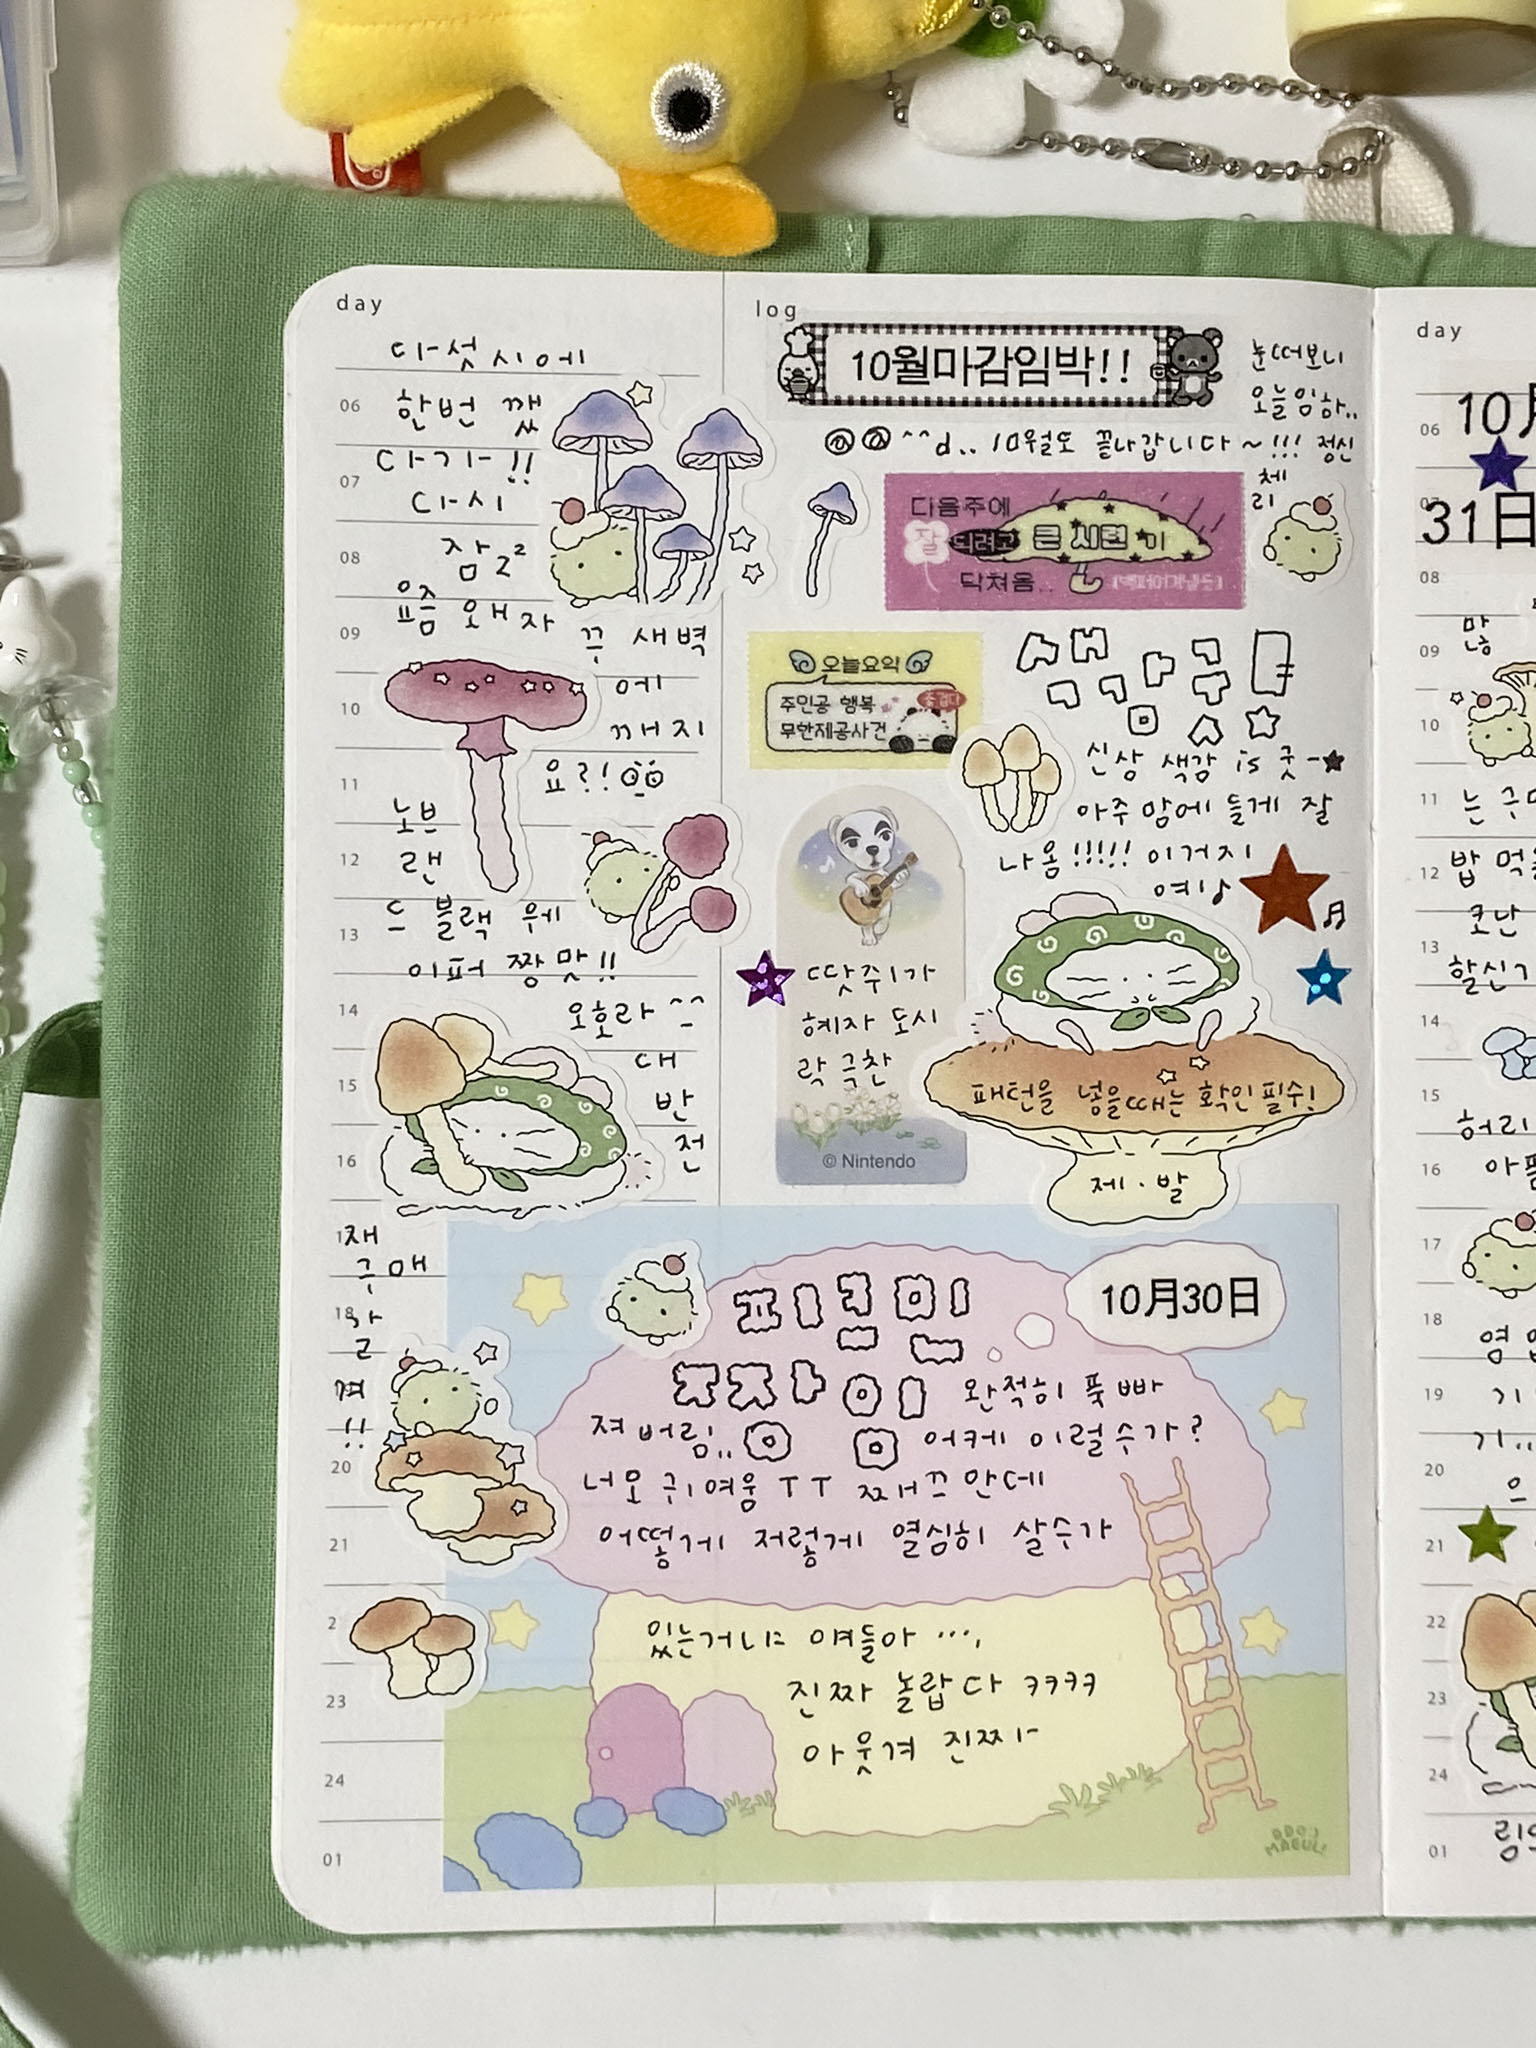 day
다섯시에
06
한번 깼
07
다가!!
다시
08
잠22
09
요즘 왜 자
꾸 새벽
에
10
깨지
11
요?!
노브
12
랜
13
드 블랙 웨
이퍼 짱 맛!!
14
오호라^^
15
대
반
16
전
재
구매
18
각
겨!!
19
20
21
2
23
24
01
log
10월마감임박!!
눈떠보니
오늘임하..
^^d.. 10월도 끝나갑니다~!!! 정신
체리
다음주에
잘 되려고 큰 시련이
닥쳐옴..
오늘요약
주인공 행복
무한제공사건
즐겁다
신상 색감 is 굿~
아주 맘에 들게 잘
나옴!!!!! 이거지
예♪
땃쥐가
혜자 도시
락 극찬
© Nintendo
패턴을 넣을때는 확인 필수!
제·발
10月30日
피크민
완적히 푹 빠
져버림..
어케 이럴수가?
너모 귀여움 ㅜㅜ 쨰끄만데
어떻게 저렇게 열심히 살수가
있는거냐 얘들아 ....
진짜 놀랍다 ㅋㅋㅋㅋ
아 웃겨 진짜
DDOJ
MAEUL!
day
06
31日
08
09
10
11
12
밥
13
14
15
허리
16
17
18
19
20
21
22
23
24
01